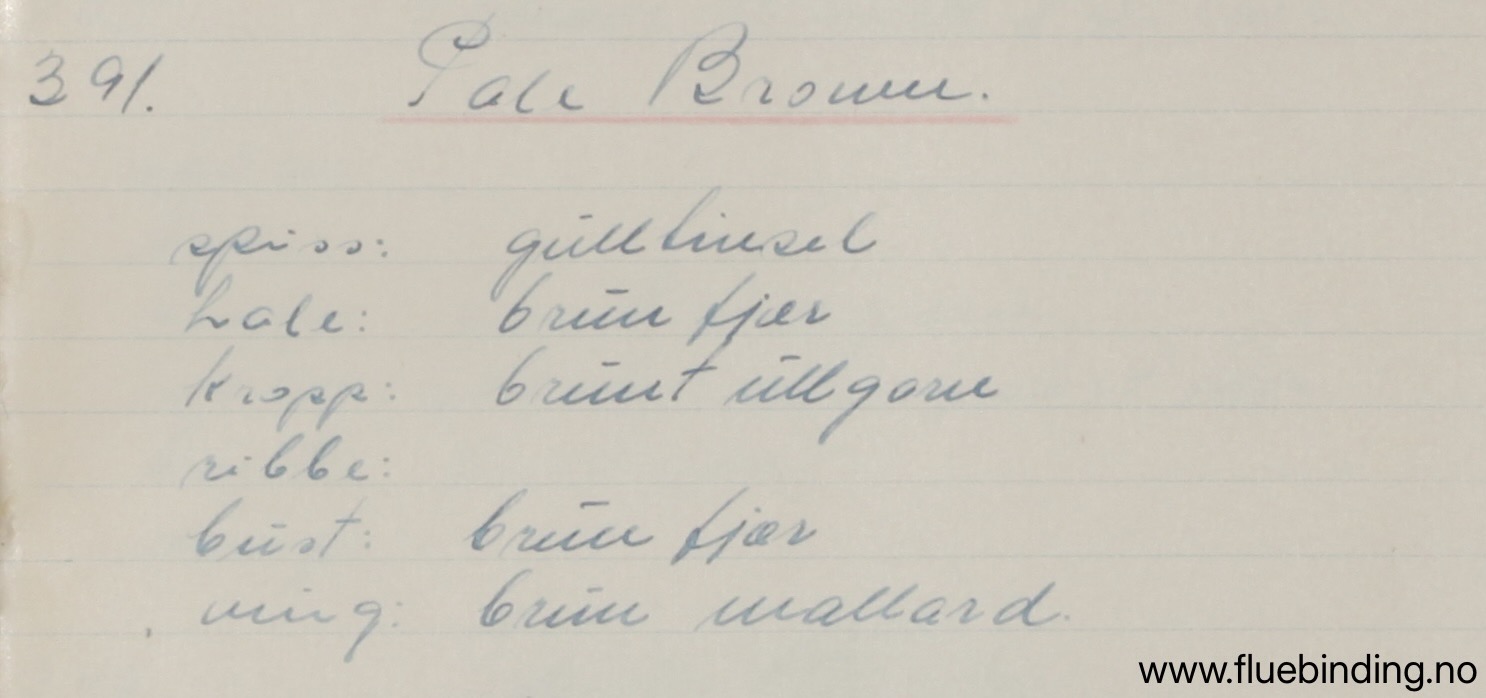 391. Pale Brown.
spiss: gulltinsel
hale: brun fjær
kropp: brunt ullgarn
ribbe:
bust: brun fjær
ving: brun mallard.
www.fluebinding.no